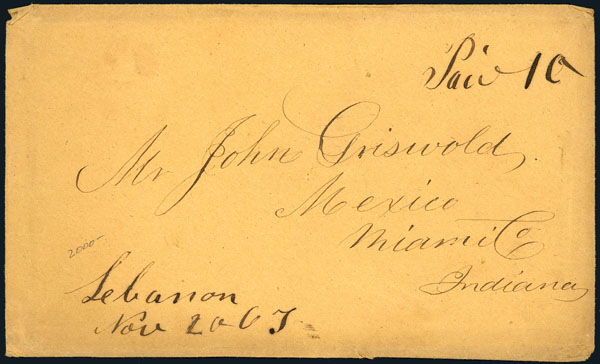 Paid 10
Mr John Griswold
Mexico
Miami Co
Indiana
2000-
Lebanon
Nov 20